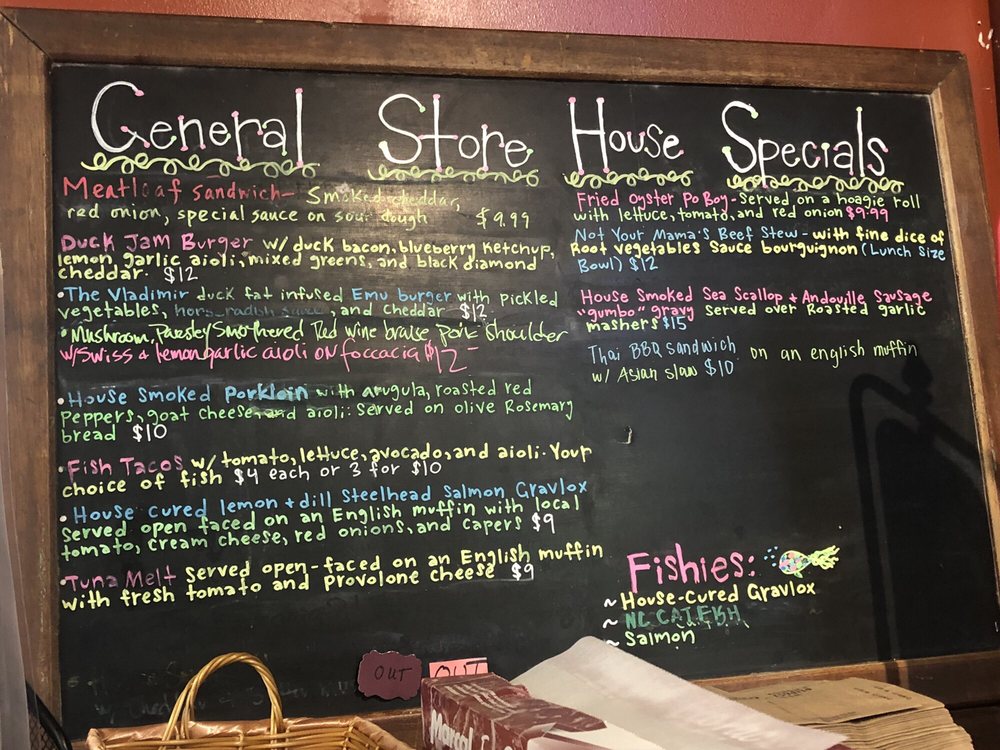 General Store House Specials
Meatloaf Sandwich- Smoked cheddar,
red onion, special sauce on sour dough $9.99
Duck Jam Burger w/ duck bacon, blueberry ketchup,
lemon, garlic aioli, mixed greens, and black diamond
cheddar. $12
•The Vladimir duck fat infused Emu burger with pickled
vegetables, horseradish sauce, and cheddar $12.
•Mushroom, Parsley Smothered Red wine braise pork shoulder
w/Swiss & lemon garlic aioli on foccacia $12-
•House Smoked Porkloin with arugula, roasted red
peppers, goat cheese, and aioli. Served on olive Rosemary
bread $10
•Fish Tacos w/ tomato, lettuce, avocado, and aioli. Your
choice of fish $4 each or 3 for $10
•House cured lemon + dill Steelhead Salmon Gravlox
served open faced on an English muffin with local
tomato, cream cheese, red onions, and capers $9
•Tuna Melt served open-faced on an English muffin
with fresh tomato and provolone cheese $9
Fried Oyster Po Boy-Served on a hoagie roll
with lettuce, tomato, and red onion $9.99
Not Your Mama's Beef Stew - with fine dice of
Root vegetables Sauce bourguignon (Lunch Size
Bowl) $12
House Smoked Sea Scallop + Andouille Sausage
"gumbo" gravy served over Roasted garlic
mashers $15
Thai BBQ Sandwich on an english muffin
w/ Asian slaw $10
Fishies:
~ House-Cured Gravlox
~ NC CATFISH
~ Salmon
OUT
OUT
Marcal